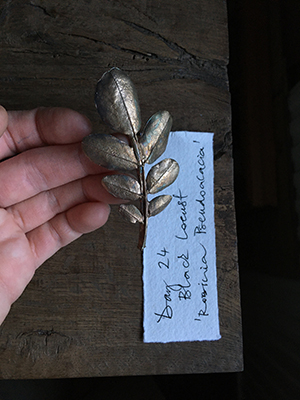 Day 24
Black Locust
'Robinia Pseudoacacia'